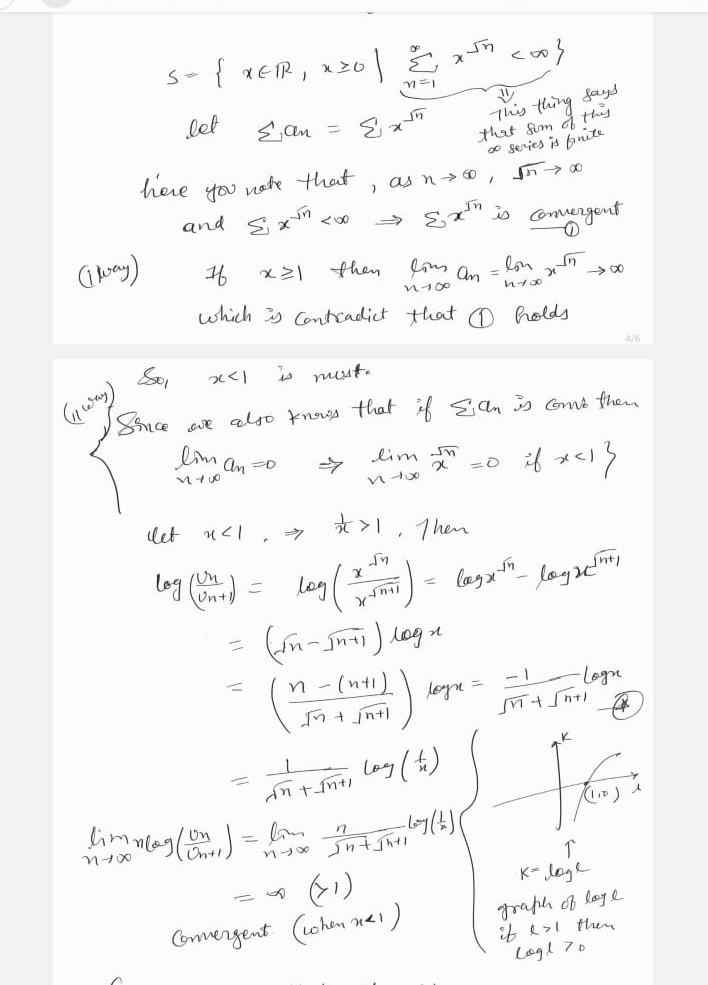 S = { x ∈ ℝ, x ≥ 0 | ∞ Σ n=1 x^√n < ∞ }
⇓
This thing says
that sum of this
∞ series is finite
let Σ an = Σ x^√n
here you note that, as n → ∞, √n → ∞
and Σ x^√n < ∞ ⇒ Σ x^√n is convergent
①
(I way) If x ≥ 1 then lim n→∞ an = lim n→∞ x^√n → ∞
which is contradict that ① holds
4/6
So, x < 1 is must.
(II way) { Since we also knows that if Σ an is conv. then
lim n→∞ an = 0 ⇒ lim n→∞ x^√n = 0 if x < 1 }
let x < 1, ⇒ 1/x > 1, Then
log (Un/Un+1) = log ( x^√n / x^√n+1 ) = log x^√n - log x^√n+1
= (√n - √n+1) log x
= ( n - (n+1) / √n + √n+1 ) log x = -1 / √n + √n+1 log x
⊛
= 1 / √n + √n+1 log (1/x)
lim n→∞ n log (Un/Un+1) = lim n→∞ n / √n + √n+1 log (1/x)
= ∞ (>1)
Convergent (when x<1)
K
(1,0)
l
↑
K = log l
graph of log l
if l > 1 then
log l > 0